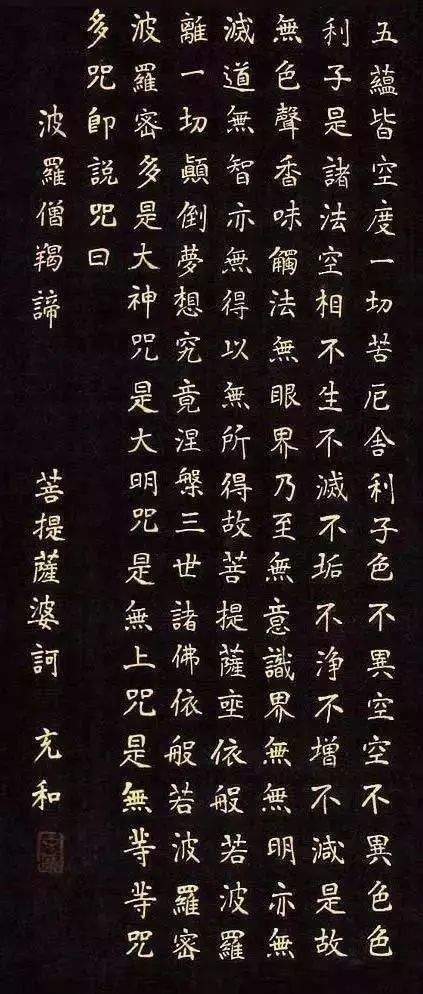 五蘊皆空度一切苦厄舍利子色不異空空不異色色
利子是諸法空相不生不滅不垢不浄不增不減是故
無色聲香味觸法無眼界乃至無意識界無無明亦無
滅道無智亦無得以無所得故菩提薩埵依般若波羅
離一切顛倒夢想究竟涅槃三世諸佛依般若波羅密
波羅密多是大神咒是大明咒是無上咒是無等等咒
多咒即說咒曰
波羅僧羯諦 菩提薩婆訶 充和